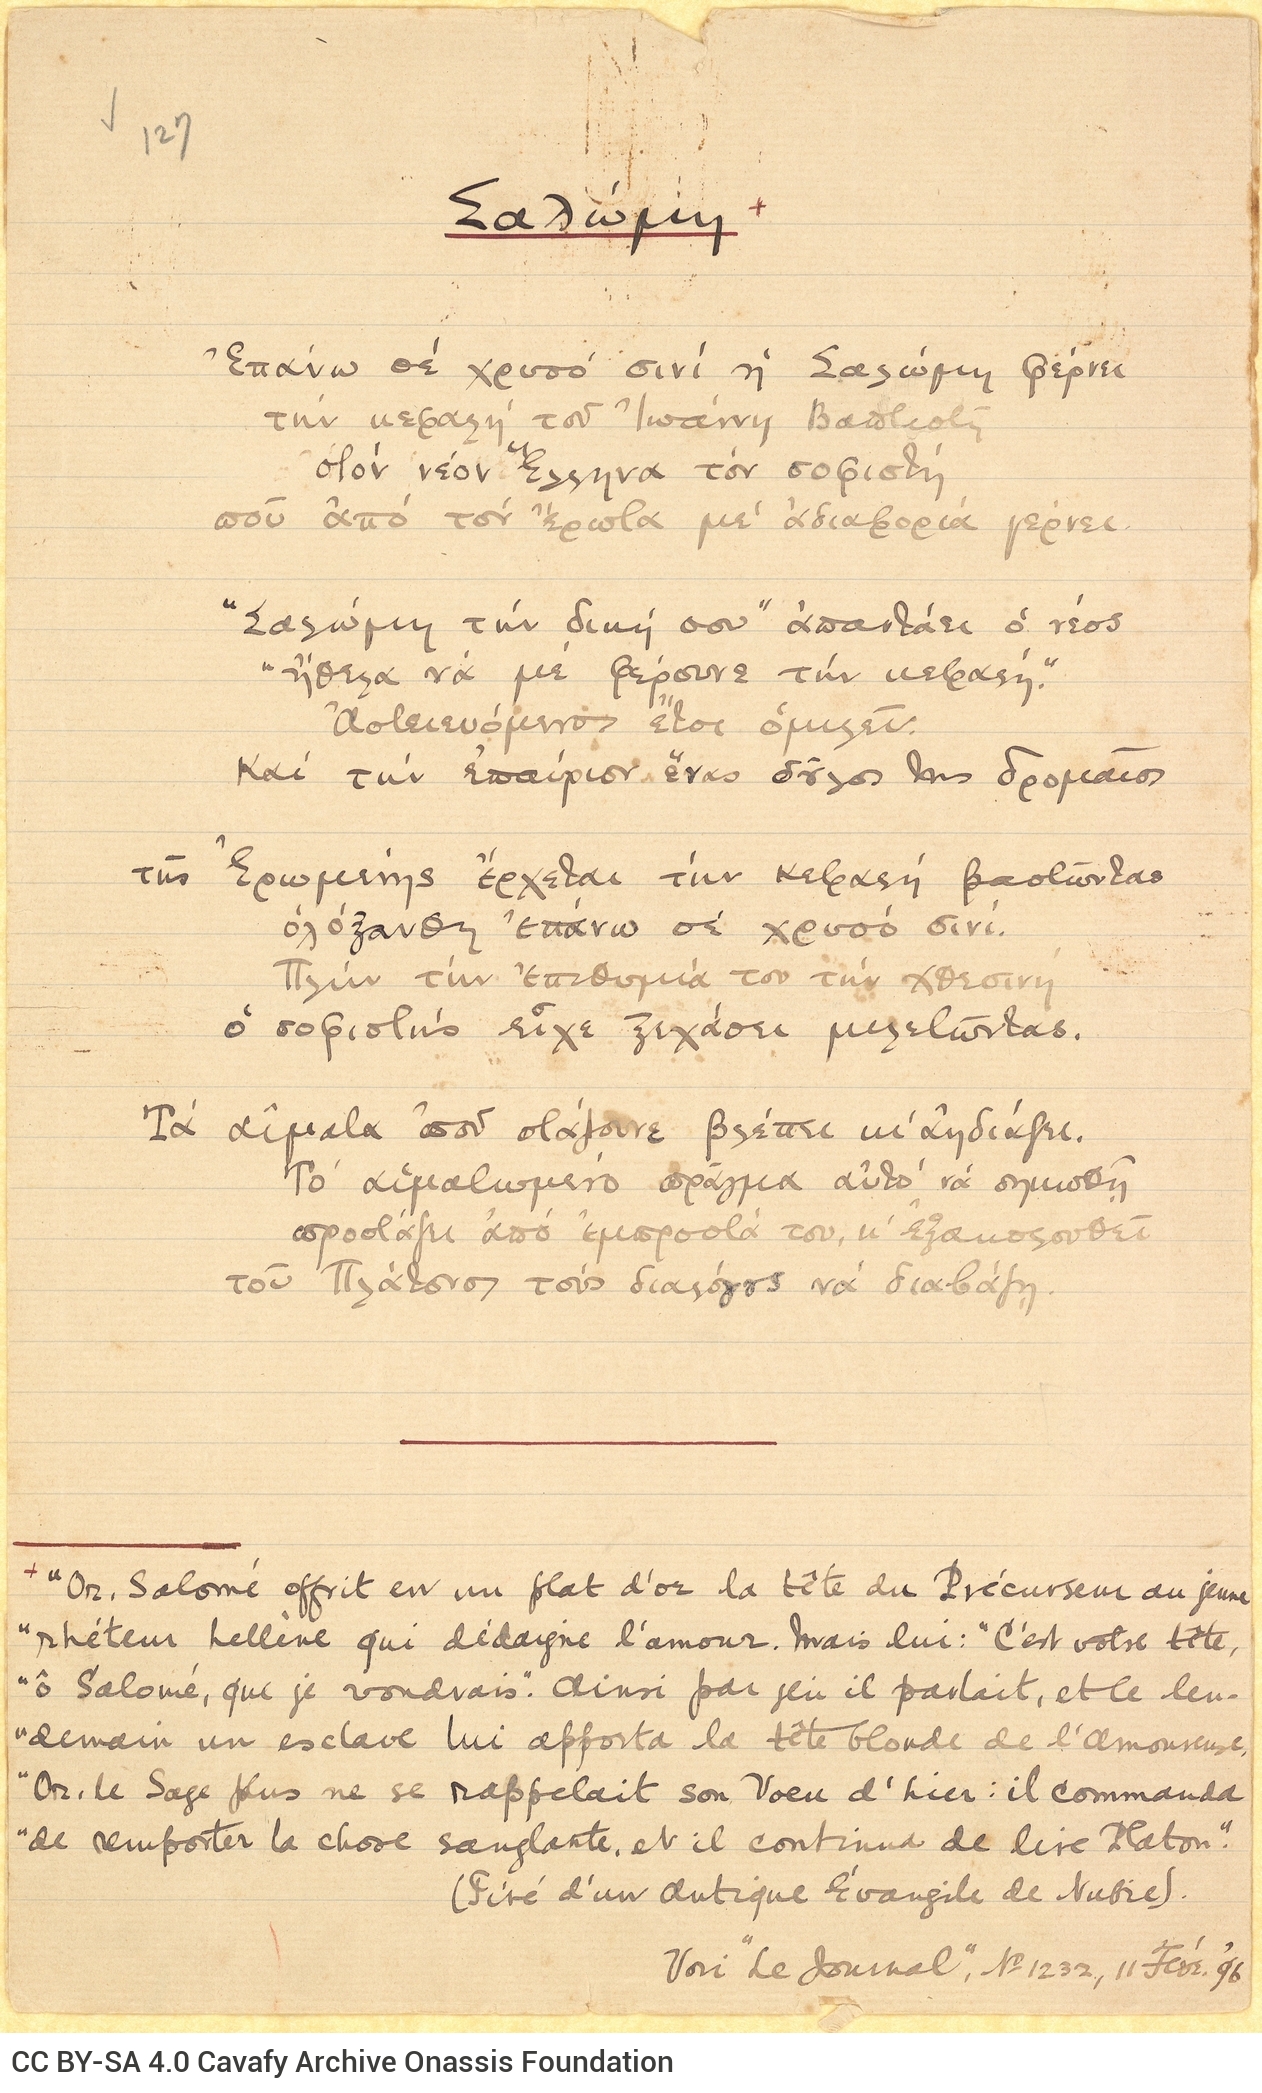 √ 127
Σαλώμη +
Ἐπάνω σέ χρυσό σινί ἡ Σαλώμη φέρνει
τήν κεφαλή τοῦ Ἰωάννη Βαπτιστῆ
στόν νέον Ἕλληνα τόν σοφιστή
ποῦ ἀπό τόν ἔρωτα μέ ἀδιαφορία γέρνει.
"Σαλώμη τήν δική σου" ἀπαντάει ὁ νέος
"ἤθελα νά μέ φέρουνε τήν κεφαλή."
Ἀστειευόμενος ἔτσι ὁμιλεῖ.
Καί τήν ἐπαύριον ἕνας δοῦλος της δρομαῖος
τῆς Ἐρωμένης ἔρχεται τήν κεφαλή βαστῶντας
ὁλόξανθη ἐπάνω σέ χρυσό σινί.
Πλήν τήν ἐπιθυμία του τήν χθεσινή
ὁ σοφιστής εἶχε ξεχάσει μελετῶντας.
Τά αἵματα ποῦ στάζουνε βλέπει κι ἀηδιάζει.
Τό αἱματωμένο πρᾶγμα αὐτό νά σηκωθῇ
προστάζει ἀπό ἐμπροστά του, κ' ἐξακολουθεῖ
τοῦ Πλάτωνος τούς διαλόγους νά διαβάζῃ.
+ "Or, Salomé offrit en un plat d'or la tête du Précurseur au jeune
"rhéteur hellène qui dédaigne l'amour. Mais lui: "C'est votre tête,
"ô Salomé, que je voudrais". Ainsi par jeu il parlait, et le len-
"demain un esclave lui apporta la tête blonde de l'Amoureuse.
"Or, le Sage plus ne se rappelait son Voeu d'hier: il commanda
"de remporter la chose sanglante, et il continua de lire Platon".
(Tiré d'un antique Évangile de Nubie).
Vori "Le Journal", No 1232, 11 Fév. '96
CC BY-SA 4.0 Cavafy Archive Onassis Foundation